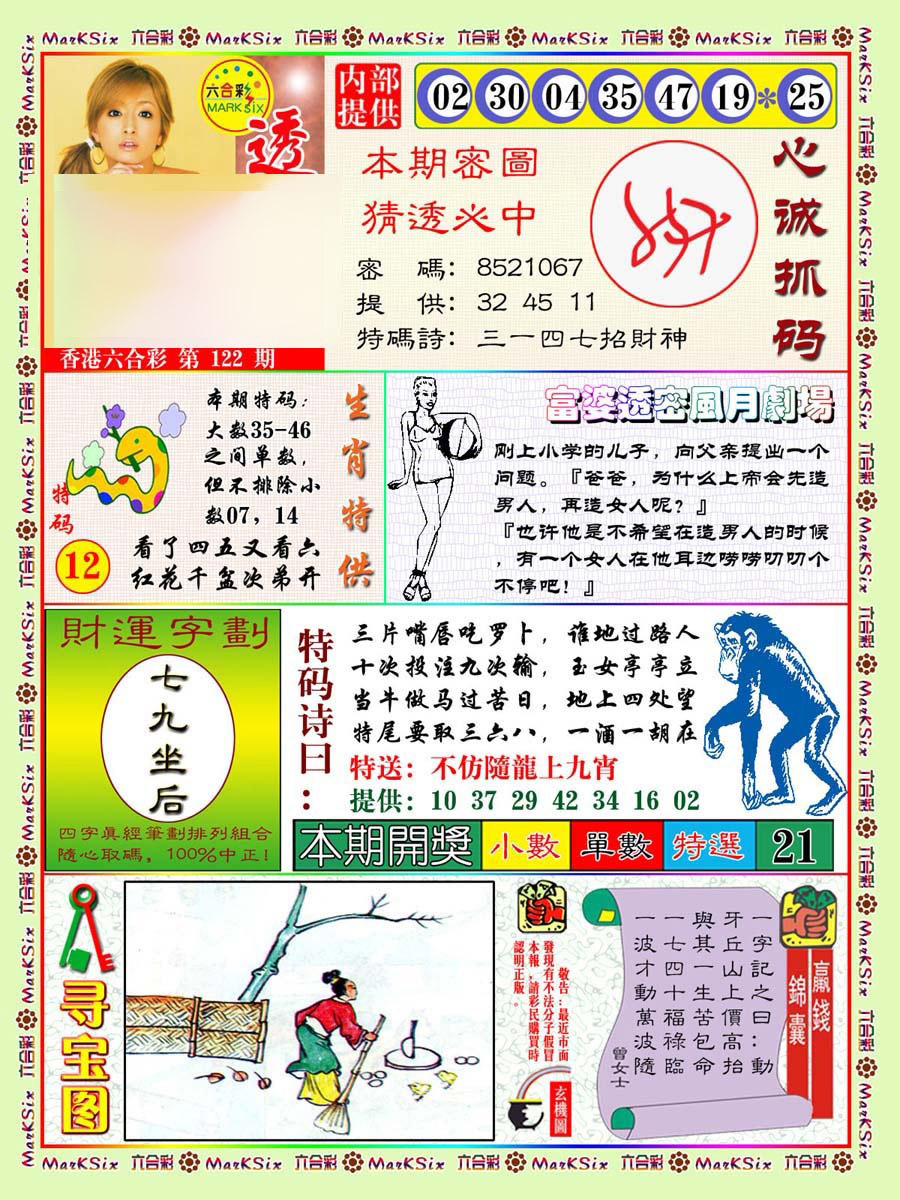 MarKSix 六合彩 MarKSix 六合彩 MarKSix 六合彩 MarKSix 六合彩 MarKSix 六合彩
六合彩
MARK SIX
透
香港六合彩 第 122 期
内部
提供
02 30 04 35 47 19 * 25
本期密圖
猜透必中
密 碼: 8521067
提 供: 32 45 11
特碼詩: 三一四七招財神
心诚抓码
特码
12
本期特码:
大数35-46
之间单数,
但不排除小
数07, 14
看了四五又看六
红花千盆次弟开
生肖特供
富婆透密風月劇場
刚上小学的儿子, 向父亲提出一个
问题。『爸爸, 为什么上帝会先造
男人, 再造女人呢? 』
『也许他是不希望在造男人的时候
, 有一个女人在他耳边唠唠叨叨个
不停吧! 』
財運字劃
七九坐后
四字真經筆劃排列組合
隨心取碼, 100%中正!
特码诗曰:
三片嘴唇吃罗卜, 谁地过路人
十次投注九次输, 玉女亭亭立
当牛做马过苦日, 地上四处望
特尾要取三六八, 一酒一胡在
特送: 不仿隨龍上九宵
提供: 10 37 29 42 34 16 02
本期開獎 小數 單數 特選 21
寻宝图
敬告:最近市面
發現有不法分子假冒
本報,請彩民購買時
認明正版。
玄機圖
贏錢
錦囊
一字記之曰:動
牙丘山上價高抬
與其一生苦包命
一七四十福祿臨
一波才動萬波隨
曾女士
MarKSix 六合彩 MarKSix 六合彩 MarKSix 六合彩 MarKSix 六合彩 MarKSix 六合彩